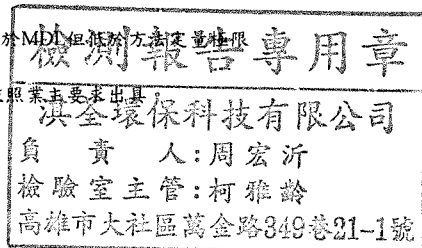 於MDL但低於方法定量極限
檢測報告專用章
照業主要求出具。
淇全環保科技有限公司
負責人:周宏沂
檢驗室主管:柯雅齡
高雄市大社區萬金路349巷21-1號